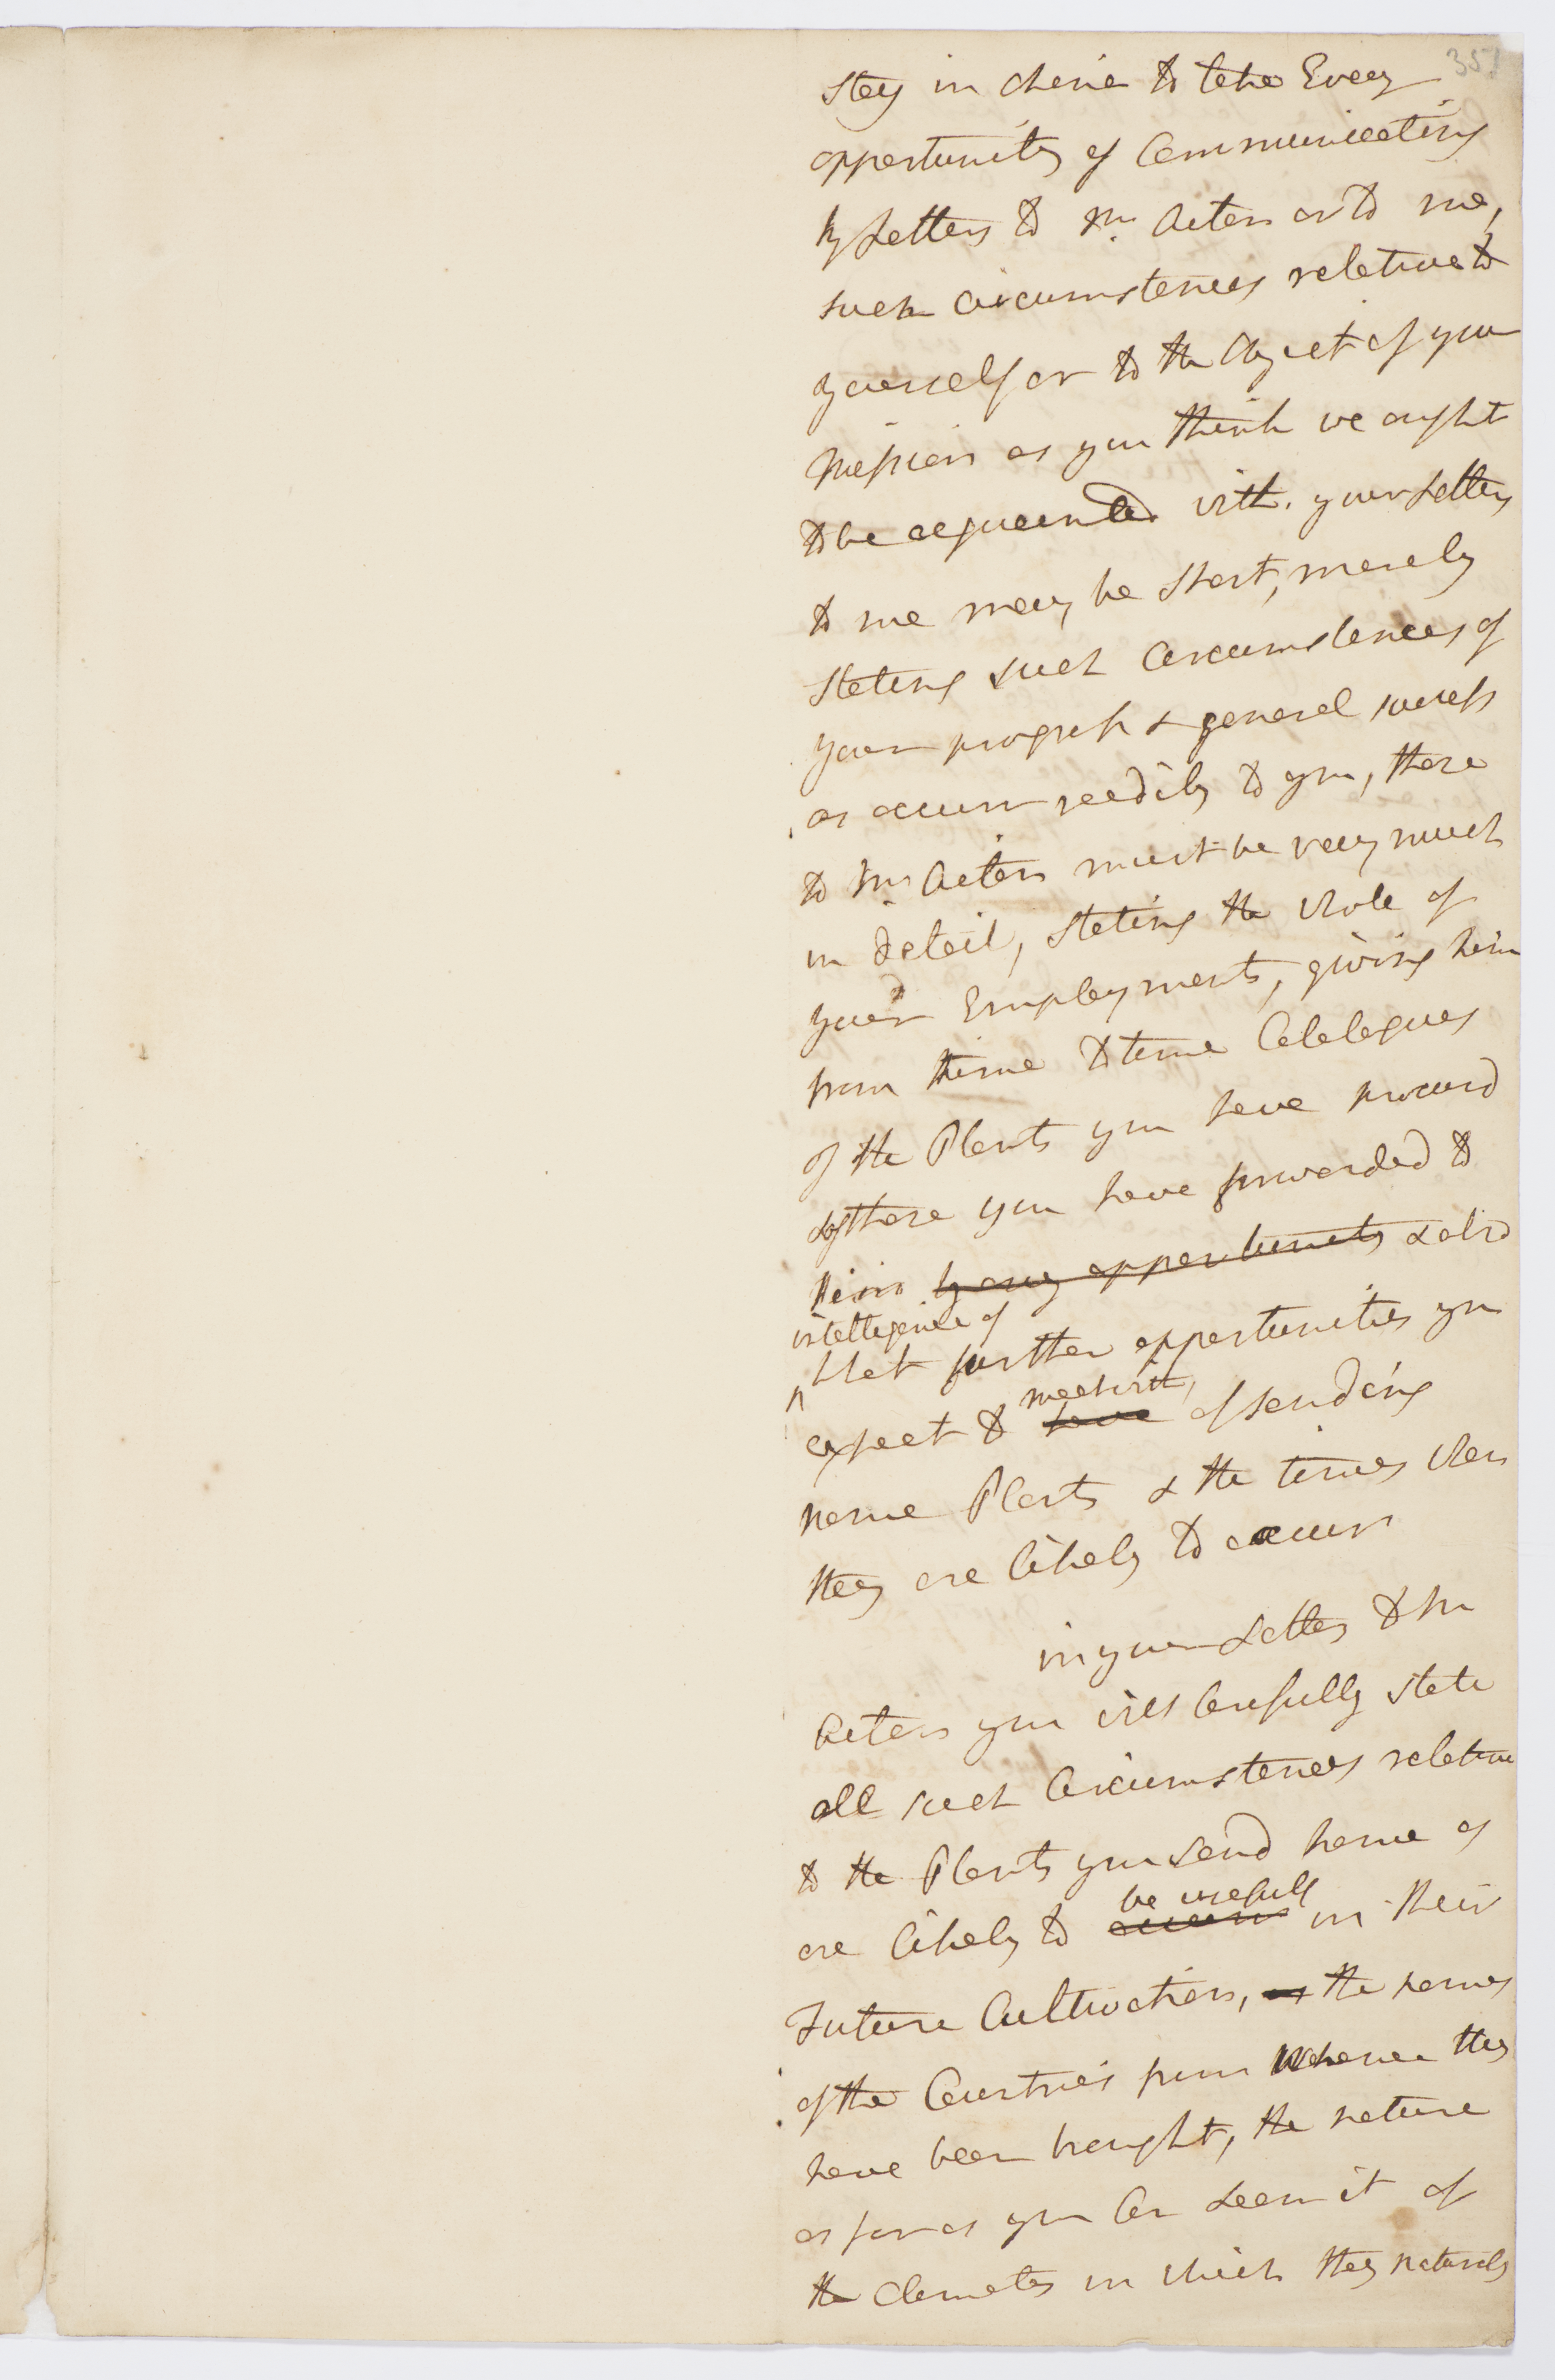 351
Stay in China to take Every
opportunity of Communicating
by Letters to Mr. Aiton or to me,
such circumstances relative to
yourself or to the Object of your
Mission as you think we ought
to be acquainted with. your Letters
to me may be short, merely
stating such Circumstances of
your progress & general success
as occurr readily to you, those
to Mr. Aiton must be very much
in detail, stating the whole of
your Employments, giving him
from time to time Catalogues
of the Plants you have procurd
& of those you have forwarded to
him by any opportunity & also
intelligence of
what further opportunities you
meet with,
expect to have of sending
home Plants & the times when
they are likely to occurr
in your Letters to Mr
Aiton you will Carefully state
all such Circumstances relative
to the Plants you send home as
be usefull
are likely to occurr in their
Future Cultivation, as the names
of the Countries from Whence they
have been brought, the nature
as far as you Can learn it of
the Climates in which they naturaly